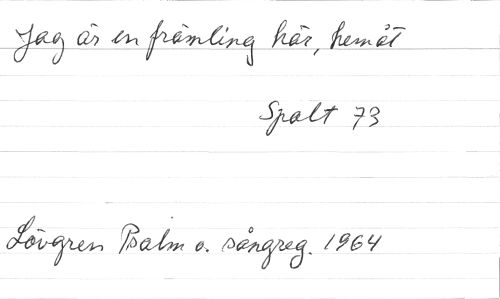 Jag är en främling här, hemåt
Spalt 73
Lövgren Psalm o. sångreg. 1964